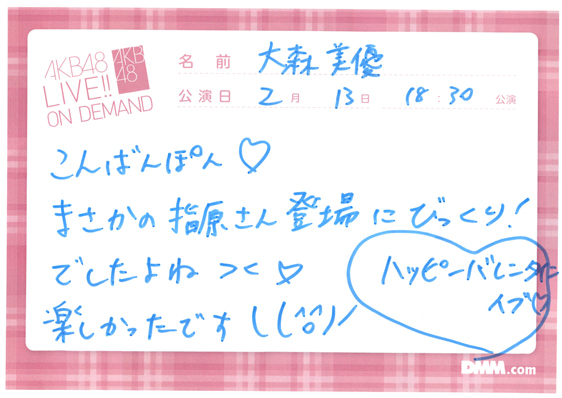 AKB48
LIVE!!
ON DEMAND
AKB
48
名前 大森美優
公演日 2月 13日 18:30 公演
こんばんぽん♡
まさかの指原さん登場にびっくり!
でしたよね つく♡
楽しかったです \(^o^)/
ハッピーバレンタイン
イブ
DMM.com